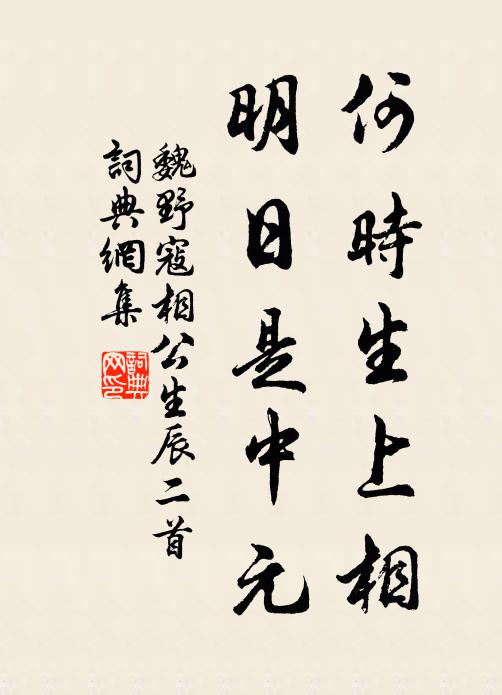 何時生上相
明日是中元
魏野寇相公生辰二首
詞典網集
詞典网印